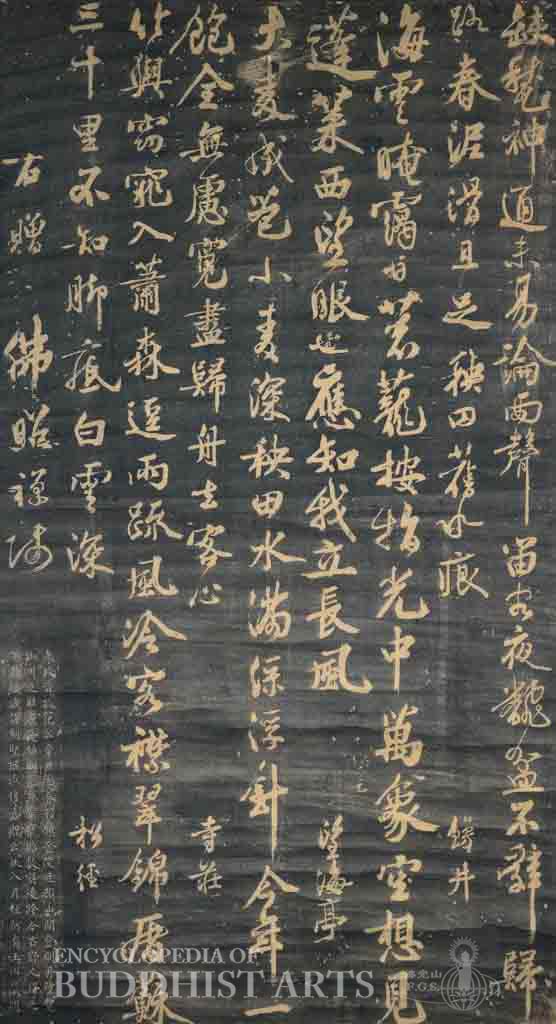 神通未易論雨聲留客夜翻盆不辭歸
路春泥滑且足秧田舊水痕 鰻井
海雲晻靄日蔥蘢按指光中萬象空想見
蓬萊西望眼也應知我立長風 望海亭
大麥成苞小麥深秧田水滿綠浮針今年一
飽全無慮寬盡歸舟去客心 寺莊
竹輿窈窕入蕭森逗雨疏風冷客襟翠錦屠蘇
三十里不知腳底白雲深 松徑
右贈佛照禪師
ENCYCLOPEDIA OF
BUDDHIST ARTS
佛光山
F.G.S.